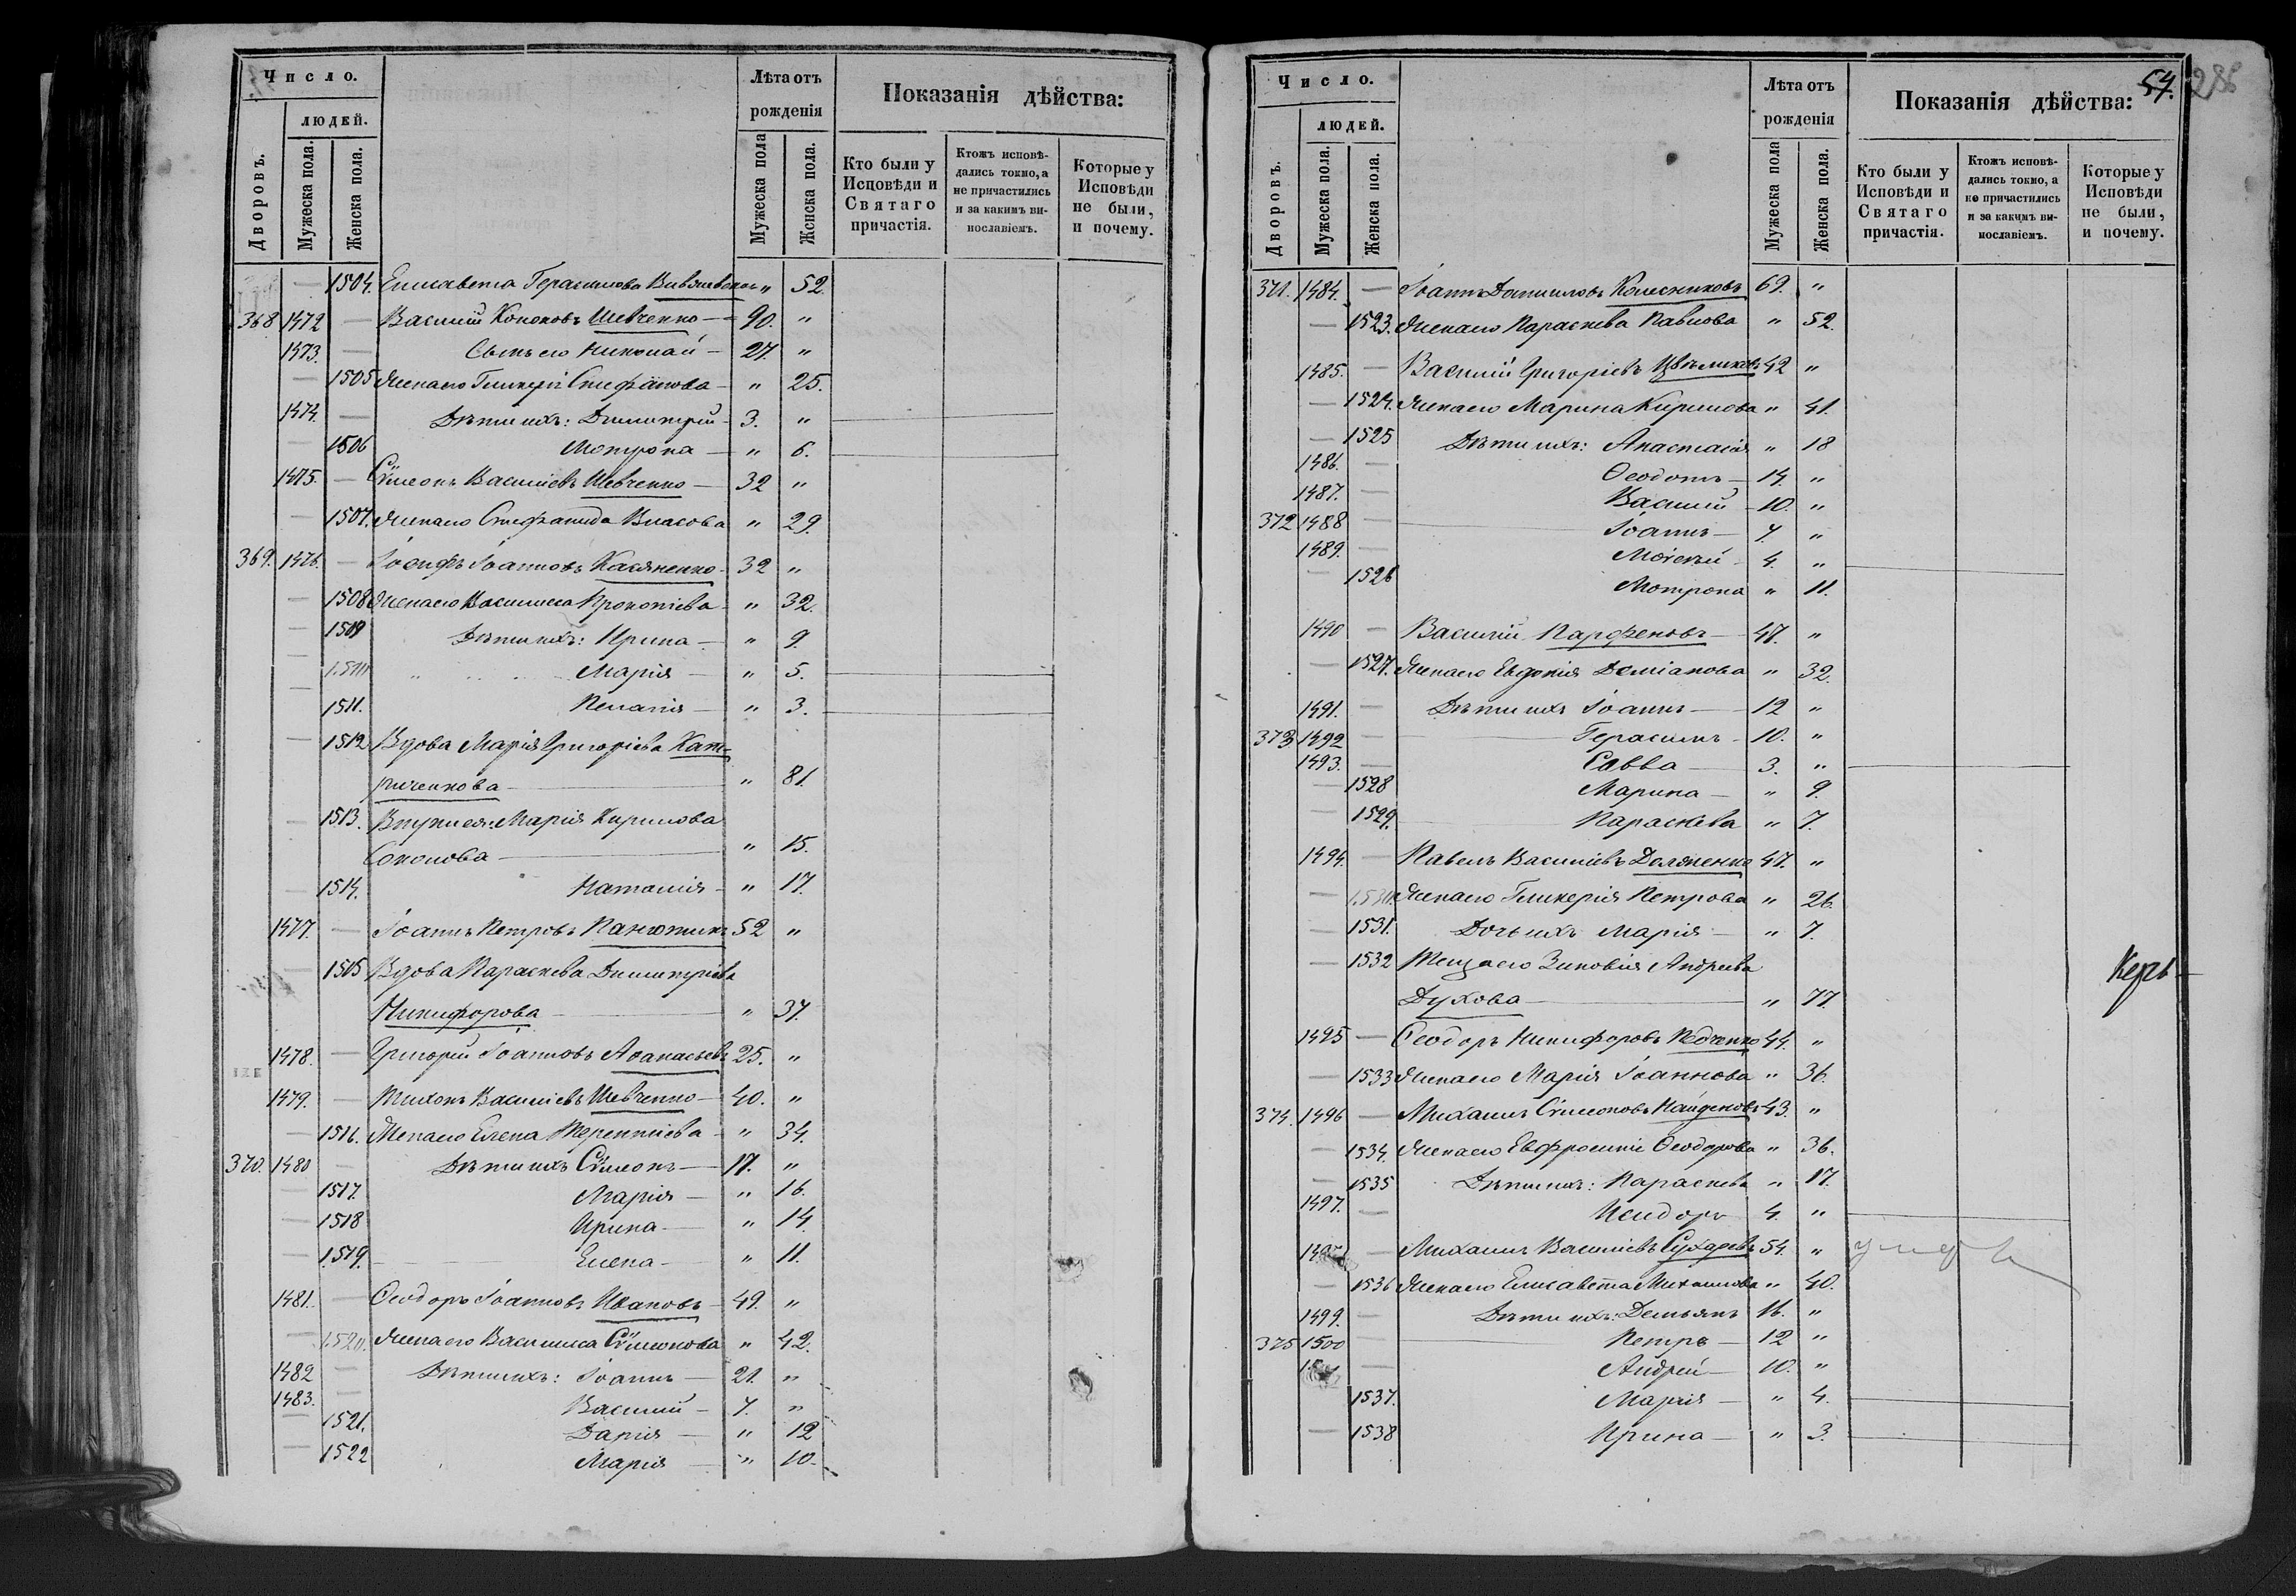 Число.
Лѣта отъ рожденія
Показанія дѣйства:
людей.
Дворовъ.
Мужеска пола.
Женска пола.
Мужеска пола
Женска пола.
Кто были у Исповѣди и Святаго причастія.
Ктожъ исповѣдались токмо, а не причастились и за какимъ винославіемъ.
Которые у Исповѣди не были, и почему.
— 1504. Елисавета Герасимова " 52.
368 1472 — Василий Кононовъ Шевченко — 90. "
1473. — Сынъ его Николай — 27. "
— 1505 Жена его Гликерія Стефанова — " 25.
1474. — Дѣти ихъ: Димитрий — 3. "
— 1506 Мотрона — " 6.
1475. — Сѵмеонъ Василіевъ Шевченко — 32 "
— 1507. Жена его Степанида Власова " 29.
369. 1476. — Іосифъ Іоанновъ Касяненко — 32 "
— 1508 Жена его Василисса Прокопіева — " 32.
— 1509 Дѣти ихъ: Ирина — " 9.
— 1510 Марія — " 5.
— 1511. Пелагія — " 3.
— 1512 Вдова Марія Григоріева Кат-
риченкова — " 81.
— 1513. Внуки ея: Марія Кирилова
Соколова — " 15.
— 1514. Наталия — " 17.
1477. — Іоаннъ Петровъ Панютинъ 52 "
— 1515 Вдова Параскева Димитріева
Никифорова — " 37.
1478. — Григорій Іоанновъ Аѳанасьевъ 25. "
1479. — Тихонъ Василіевъ Шевченко — 40. "
— 1516. Жена его Елена Терентіева — " 34.
370. 1480 — Дѣти ихъ Сѵмеонъ — 17. "
— 1517. Марія — " 16.
— 1518 Ирина — " 14.
— 1519. Елена — " 11.
1481. — Ѳеодоръ Іоанновъ Ивановъ — 49. "
— 1520. Жена его Василиса Сѵмеонова " 42.
1482 — Дѣти ихъ: Іоаннъ — 21. "
1483. — Василий — 7. "
— 1521. Дарія — " 12
— 1522 Марія — " 10.
54.
286
Число.
Лѣта отъ рожденія
Показанія дѣйства:
людей.
Дворовъ.
Мужеска пола.
Женска пола.
Мужеска пола
Женска пола.
Кто были у Исповѣди и Святаго причастія.
Ктожъ исповѣдались токмо, а не причастились и за какимъ винославіемъ.
Которые у Исповѣди не были, и почему.
371. 1484. — Іоаннъ Даниловъ Колесниковъ 69. "
— 1523. Жена его Параскева Павлова " 52.
1485. — Василий Григоріевъ 42 "
— 1524. Жена его Марина Кирилова " 41.
— 1525 Дѣти ихъ: Анастасія " 18
1486. — Ѳеодотъ — 14. "
1487. — Василий — 10. "
372 1488 — Іоаннъ — 7. "
1489. — Моисей — 4. "
— 1526 Мотрона " 11.
1490 — Василий Парфеновъ — 47. "
— 1527. Жена его Евдокія Деміанова " 32.
1491. — Дѣти ихъ Іоаннъ — 12 "
373. 1492 — Герасимъ — 10. "
1493. — Савва — 3. "
— 1528 Марина — " 9.
— 1529. Параскева " 7.
1494. — Павелъ Василіевъ 47. "
— 1530. Жена его Гликерія Петрова " 26.
— 1531. Дочь ихъ Марія — " 7.
— 1532 Теща его Зиновія Андреева
Духова — " 77.
1495 — Ѳеодоръ Никифоровъ Педченко 44. "
— 1533 Жена его Марія Іоаннова " 36.
374. 1496 — Михаилъ Сѵмеоновъ Найденовъ 43. "
— 1534. Жена его Евфросинія Ѳеодорова " 36.
— 1535 Дѣти ихъ: Параскева " 17.
1497. — Исидоръ 4. "
— Михаилъ Василіевъ Сухаревъ 54. "
— 1536 Жена его Елисавета Михаилова " 40.
1499. — Дѣти ихъ: Демьянъ 16. "
375 1500 — Петръ — 12 "
— Андрей — 10. "
— 1537. Марія — " 4.
— 1538 Ирина — " 3.